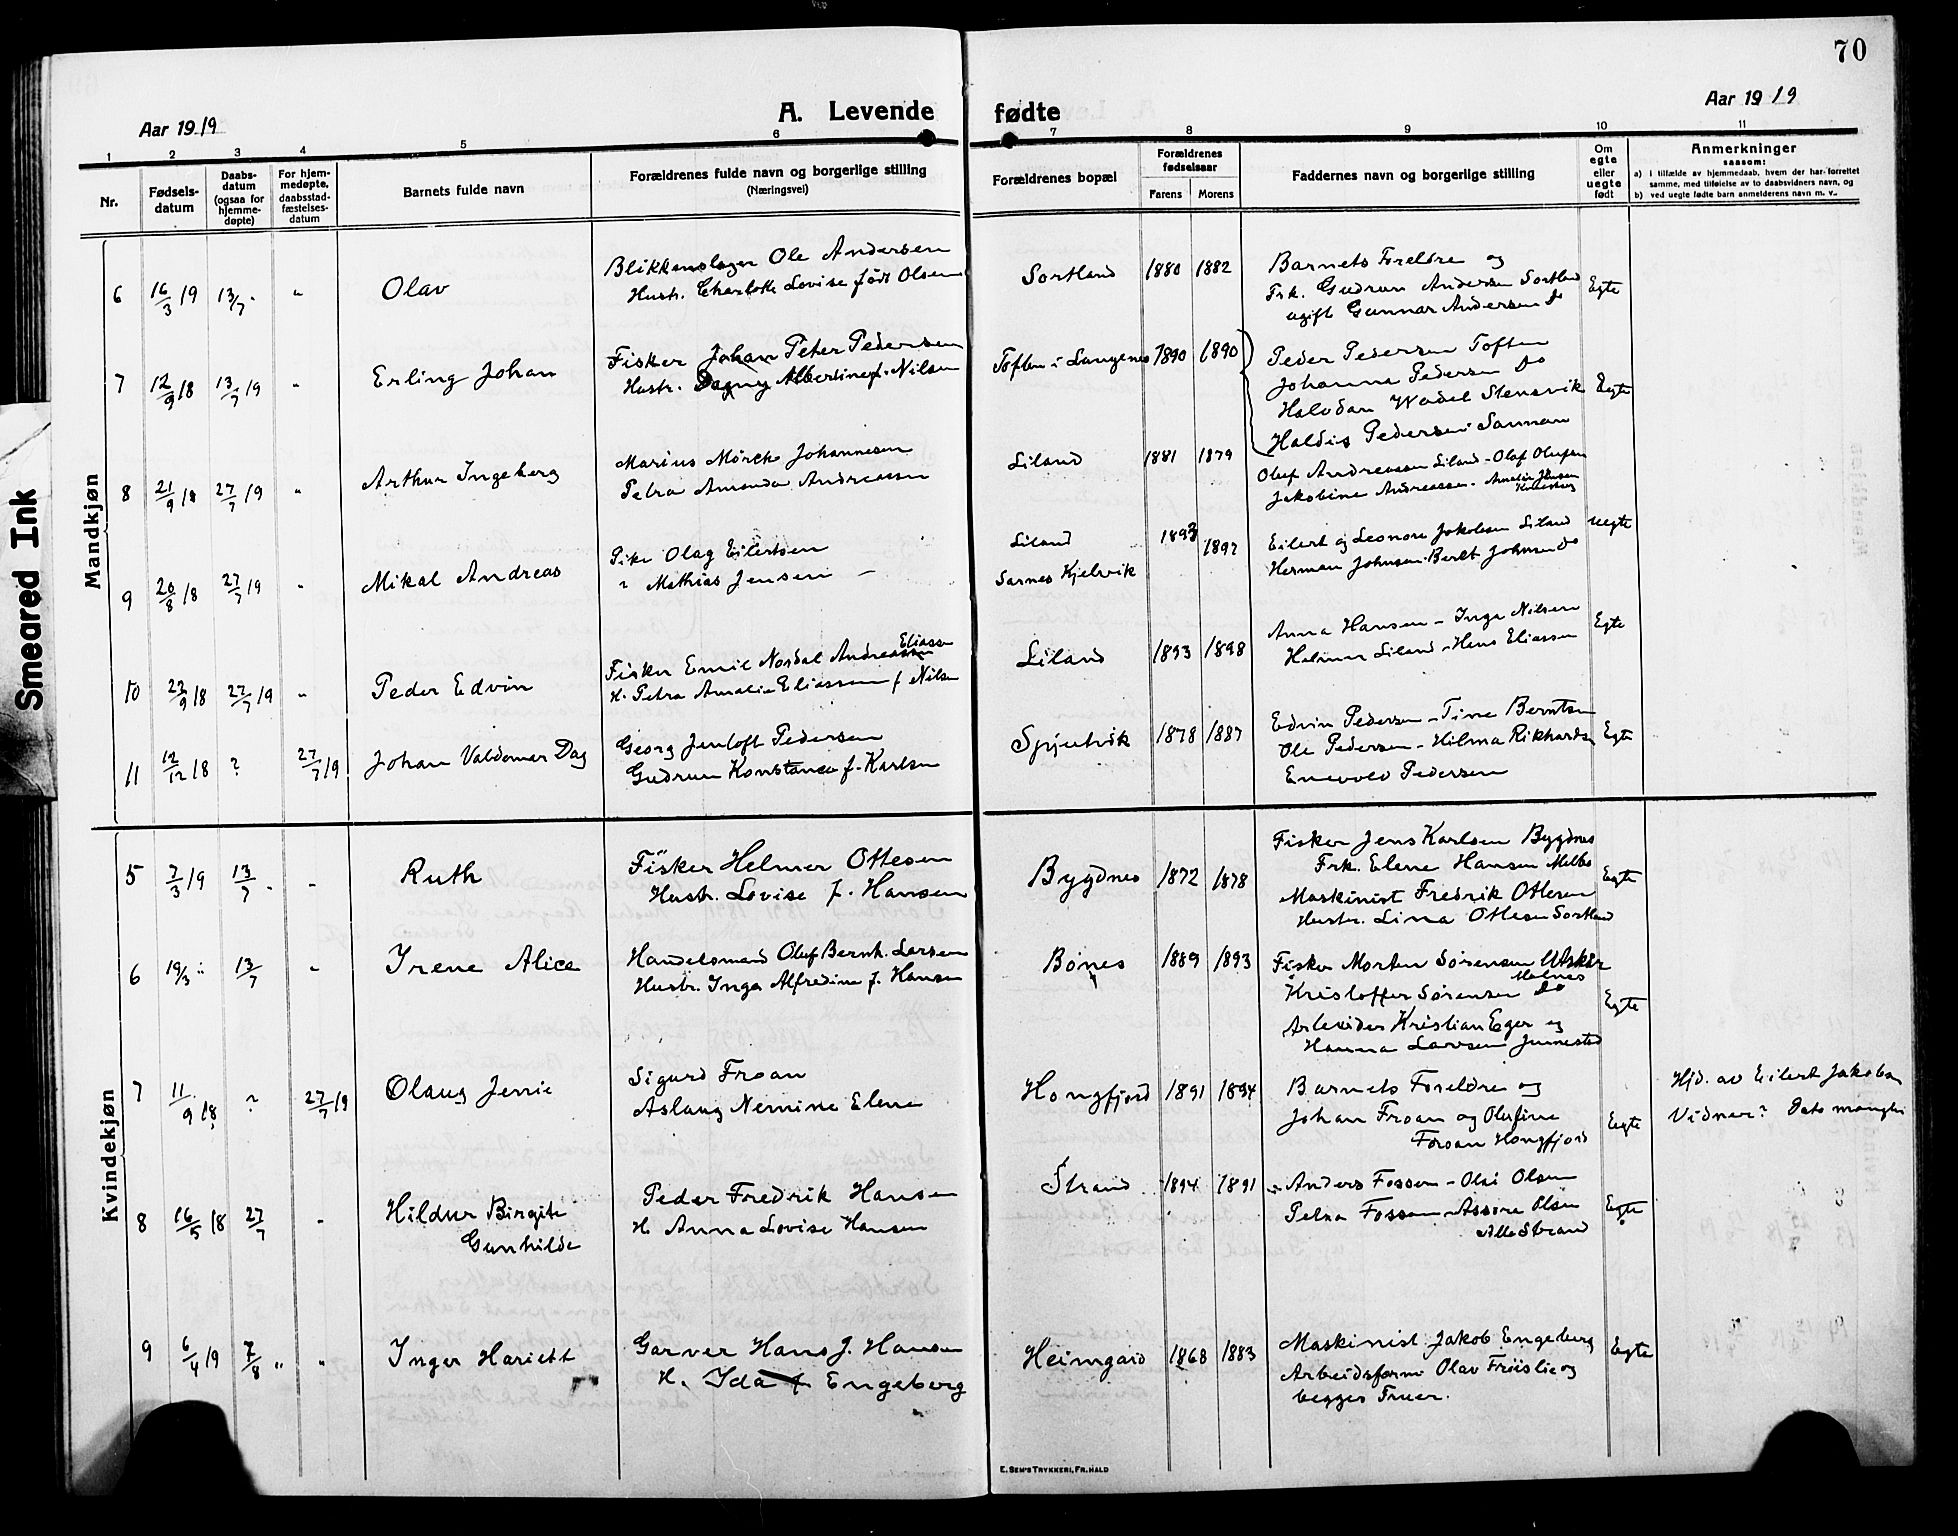 70
Aar 1919
A. Levende fødte
Aar 1919
1 2 3 4 5 6 7 8 9 10 11
Nr.
Fødsels-
datum
Daabs-
datum
(ogsaa for
hjemme-
døpte)
For hjem-
medøpte,
daabsstad-
fæstelses-
datum
Barnets fulde navn
Forældrenes fulde navn og borgerlige stilling
(Næringsvei)
Forældrenes bopæl
Forældrenes
fødselsaar
Farens Morens
Faddernes navn og borgerlige stilling
Om
egte
eller
uegte
født
Anmerkninger
saasom:
a) i tilfælde av hjemmedaab, hvem der har forrettet
samme, med tilføielse av to daabsvidners navn, og
b) ved uegte fødte barn anmelderens navn m. v.
Smeared Ink
Mandkjøn
6 16/3 19 13/7 " " Olav
Blikkenslager Ole Andersen
Hustr. Charlotte Lovise født Olsen
Sortland 1880 1882
Barnets Foreldre og
Frk. Gudrun Andersen Sortland
ugift Gunnar Andersen Do
Egte
7 12/9 18 13/7 19 " Erling Johan
Fisker Johan Peter Pedersen
Hustr. Dagny Albertine f. Nilsen
Toften i Langenes 1890 1890
Peder Pedersen Toften
Johanna Pedersen Do
Halvdan Wedel Stensvik
Haldis Pedersen
Egte
8 21/9 18 27/7 19 " Arthur Ingeberg
Marius Mørck Johannesen
Petra Amanda Andreassen
Liland 1881 1879
Oluf Andreassen Liland - Olaf Olufsen
Jakobine Andreassen - Amalie Jensen
9 20/8 18 27/7 19 " Mikal Andreas
Pike Olag Eilertsen
" Mathias Jensen -
Liland
Sarnes Kjelvik
1893 1892
Eilert og Leonore Jakobsen Liland
Herman Johnsen - Berit Johnsen Do
uegte
10 27/9 18 27/7 19 " Peder Edvin
Eliassen
Fisker Emil Nordal Andreassen
H. Petra Amalie Eliassen f Nilsen
Liland 1893 1898
Anna Hansen - Inga Nilsen
Halmar Liland - Hans Eliassen
Egte
11 12/12 18 ? 27/7 19 Johan Valdemar Dag
Georg Jentoft Pedersen
Gudrun Konstance f. Karlsen
Spjutvik 1878 1887
Edvin Pedersen - Tine Berntsen
Ole Pedersen - Hilma Rikhardsen
Enevold Pedersen
Egte
Kvindekjøn
5 7/3 19 13/7 " " Ruth
Fisker Helmer Ottesen
Hustr. Lovise f. Hansen
Bygdnes 1872 1878
Fisker Jens Karlsen Bygdnes
Frk. Elene Hansen Melbo
Maskinist Fredrik Ottesen
Hustr. Lina Ottesen Sortland
Egte
6 19/3 " 13/7 " Irene Alice
Handelsmand Oluf Bernh. Larsen
Hustr. Inga Alfredine f. Hansen
Bønes 1889 1893
Fisker Morten Sørensen
Melnes
Kristoffer Sørensen Do
Arbeider Kristian Eger og
Hanna Larsen Jennestad
Egte
7 11/9 18 ? 27/7 19 Olaug Jenie
Sigurd Froan
Aslaug Nernine Elene
Hongfjord 1891 1894
Barnets Foreldre og
Johan Froan og Olufine
Froan Hongfjord
Egte
Hjd. av Eilert Jakobsen
Vidner? Dato mangler
8 16/5 18 27/7 " Hildur Birgit
Gunhilde
Peder Fredrik Hansen
H Anna Lovise Hansen
Strand 1894 1891
Anders Fossen - Olai Olsen
Petra Fossen - Assore Olsen
Alle Strand
Egte
9 6/4 19 7/8 " " Inger Hariett
Garver Hans J. Hansen
H. Ida f. Engeberg
Heimgard 1868 1883
Maskinist Jakob Engeberg
Arbeidsform Olav Friislie og
begges Fruer.
Egte
E. SEM'S TRYKKERI, FR.HALD